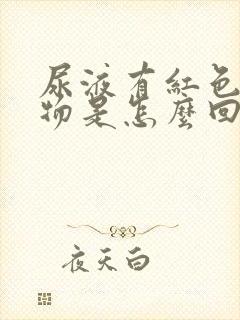 尿液有紅色
物是怎麼回
夜天白